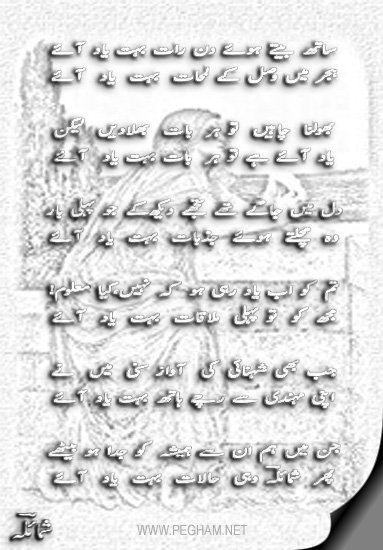 ساتھ بیتے ہوئے دن رات بہت یاد آئے
ہجر میں وصل کے لمحات بہت یاد آئے
بھولنا چاہیں تو ہر بات بھلا دیں لیکن
یاد آئے ہے تو ہر بات بہت یاد آئے
دل میں جاگے تھے تجھے دیکھ کے جو پہلی بار
وہ مچلتے ہوئے جذبات بہت یاد آئے
تم کو اب یاد رہی ہو کہ نہیں، کیا معلوم!
مجھ کو تو پہلی ملاقات بہت یاد آئے
جب بھی شہنائی کی آواز سنی میں نے
اپنی مہندی سے رچے ہاتھ بہت یاد آئے
جن میں ہم ان سے ہمیشہ کو جدا ہو بیٹھے
پھر شمائلہ وہی حالات بہت یاد آئے
شمائلہ
WWW.PEGHAM.NET